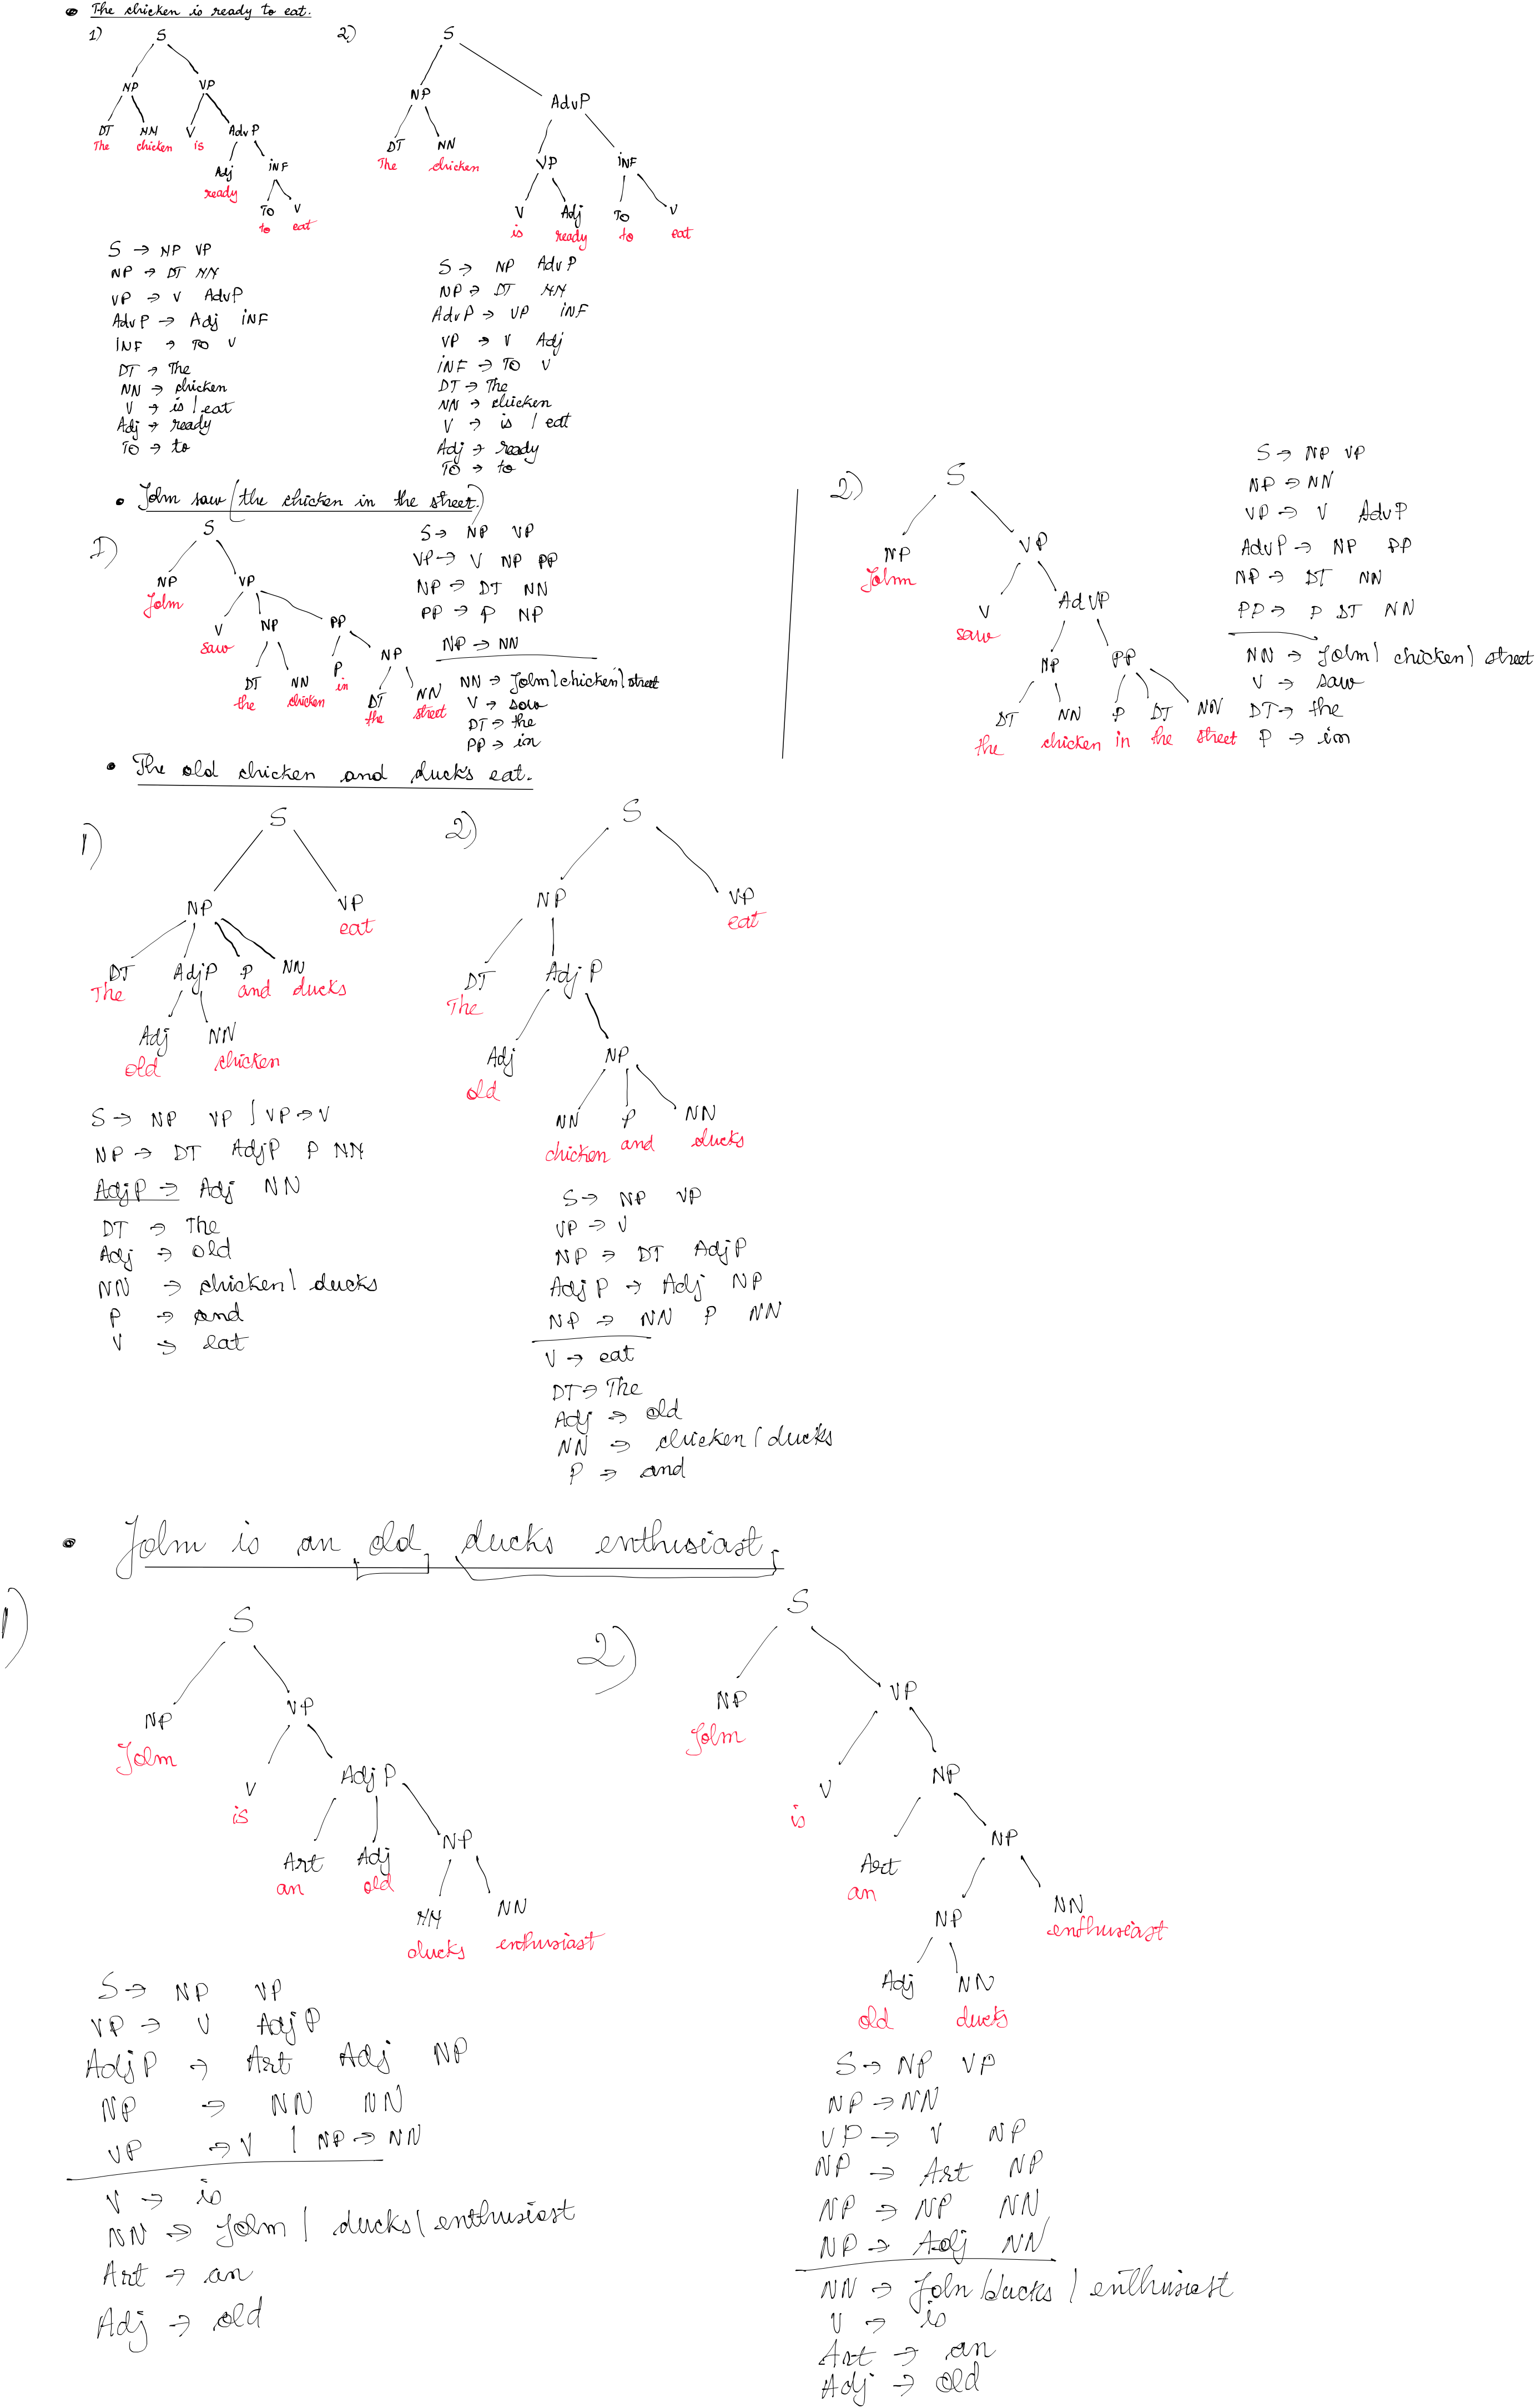 • The chicken is ready to eat.
1) S
NP VP
DT NN V AdvP
The chicken is
Adj INF
ready
TO V
to eat
S → NP VP
NP → DT NN
VP → V AdvP
AdvP → Adj INF
INF → TO V
DT → The
NN → chicken
V → is | eat
Adj → ready
TO → to
2) S
NP AdvP
DT NN
The chicken
VP INF
V Adj TO V
is ready to eat
S → NP AdvP
NP → DT NN
AdvP → VP INF
VP → V Adj
INF → TO V
DT → The
NN → chicken
V → is | eat
Adj → ready
TO → to
• John saw (the chicken in the street.)
1) S
NP VP
John
V NP PP
saw
DT NN P NP
the chicken in
DT NN
the street
S → NP VP
VP → V NP PP
NP → DT NN
PP → P NP
NP → NN
NN → John | chicken | street
V → saw
DT → the
PP → in
2) S
NP VP
John
V AdvP
saw
NP PP
DT NN P DT NN
the chicken in the street
S → NP VP
NP → NN
VP → V AdvP
AdvP → NP PP
NP → DT NN
PP → P DT NN
NN → John | chicken | street
V → saw
DT → the
P → in
• The old chicken and ducks eat.
1) S
NP VP
eat
DT AdjP P NN
The and ducks
Adj NN
old chicken
S → NP VP | VP → V
NP → DT AdjP P NN
AdjP → Adj NN
DT → The
Adj → old
NN → chicken | ducks
P → and
V → eat
2) S
NP VP
eat
DT AdjP
The
Adj NP
old
NN P NN
chicken and ducks
S → NP VP
VP → V
NP → DT AdjP
AdjP → Adj NP
NP → NN P NN
V → eat
DT → The
Adj → old
NN → chicken | ducks
P → and
• John is an old ducks enthusiast.
1) S
NP VP
John
V AdjP
is
Art Adj NP
an old
NN NN
ducks enthusiast
S → NP VP
VP → V AdjP
AdjP → Art Adj NP
NP → NN NN
VP → V | NP → NN
V → is
NN → John | ducks | enthusiast
Art → an
Adj → old
2) S
NP VP
John
V NP
is
Art NP
an
NP NN
enthusiast
Adj NN
old ducks
S → NP VP
NP → NN
VP → V NP
NP → Art NP
NP → NP NN
NP → Adj NN
NN → John | ducks | enthusiast
V → is
Art → an
Adj → old